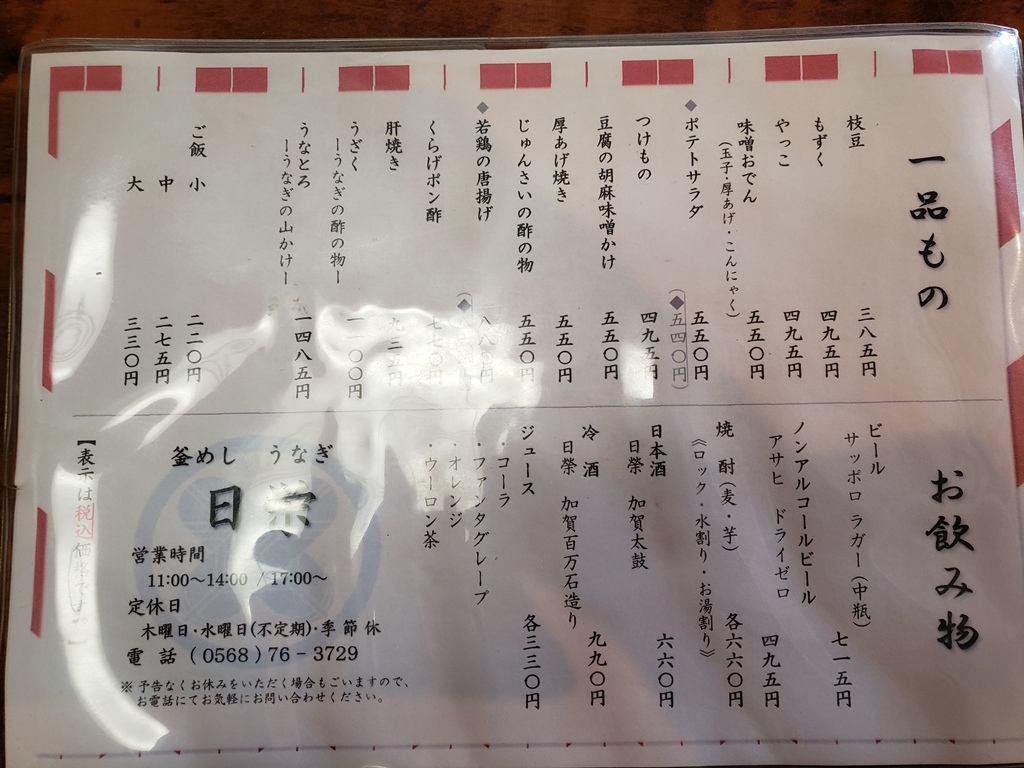 一品もの
枝豆 三八五円
もずく 四九五円
やっこ 四九五円
味噌おでん 五五〇円
(玉子・厚あげ・こんにゃく)
◆ポテトサラダ 五五〇円
(◆五四〇円)
つけもの 四九五円
豆腐の胡麻味噌かけ 五五〇円
厚あげ焼き 五五〇円
じゅんさいの酢の物 五五〇円
◆若鶏の唐揚げ 八八〇円
(◆
くらげポン酢 七七〇円
肝焼き
うざく 一一〇〇円
ーうなぎの酢の物ー
うなとろ 一四八五円
ーうなぎの山かけー
ご飯 小 二二〇円
中 二七五円
大 三三〇円
お飲み物
ビール
サッポロラガー(中瓶) 七一五円
ノンアルコールビール
アサヒ ドライゼロ 四九五円
焼酎(麦・芋) 各六六〇円
《ロック・水割り・お湯割り》
日本酒
日榮 加賀太鼓 六六〇円
冷酒
日榮 加賀百万石造り 九九〇円
ジュース 各三三〇円
・コーラ
・ファンタグレープ
・オレンジ
・ウーロン茶
釜めし うなぎ
日栄
営業時間
11:00～14:00 / 17:00～
定休日
木曜日・水曜日(不定期)・季節休
電話 (0568)76-3729
※予告なくお休みをいただく場合もございますので、
お電話にてお気軽にお問い合わせください。
【表示は税込価格です。】